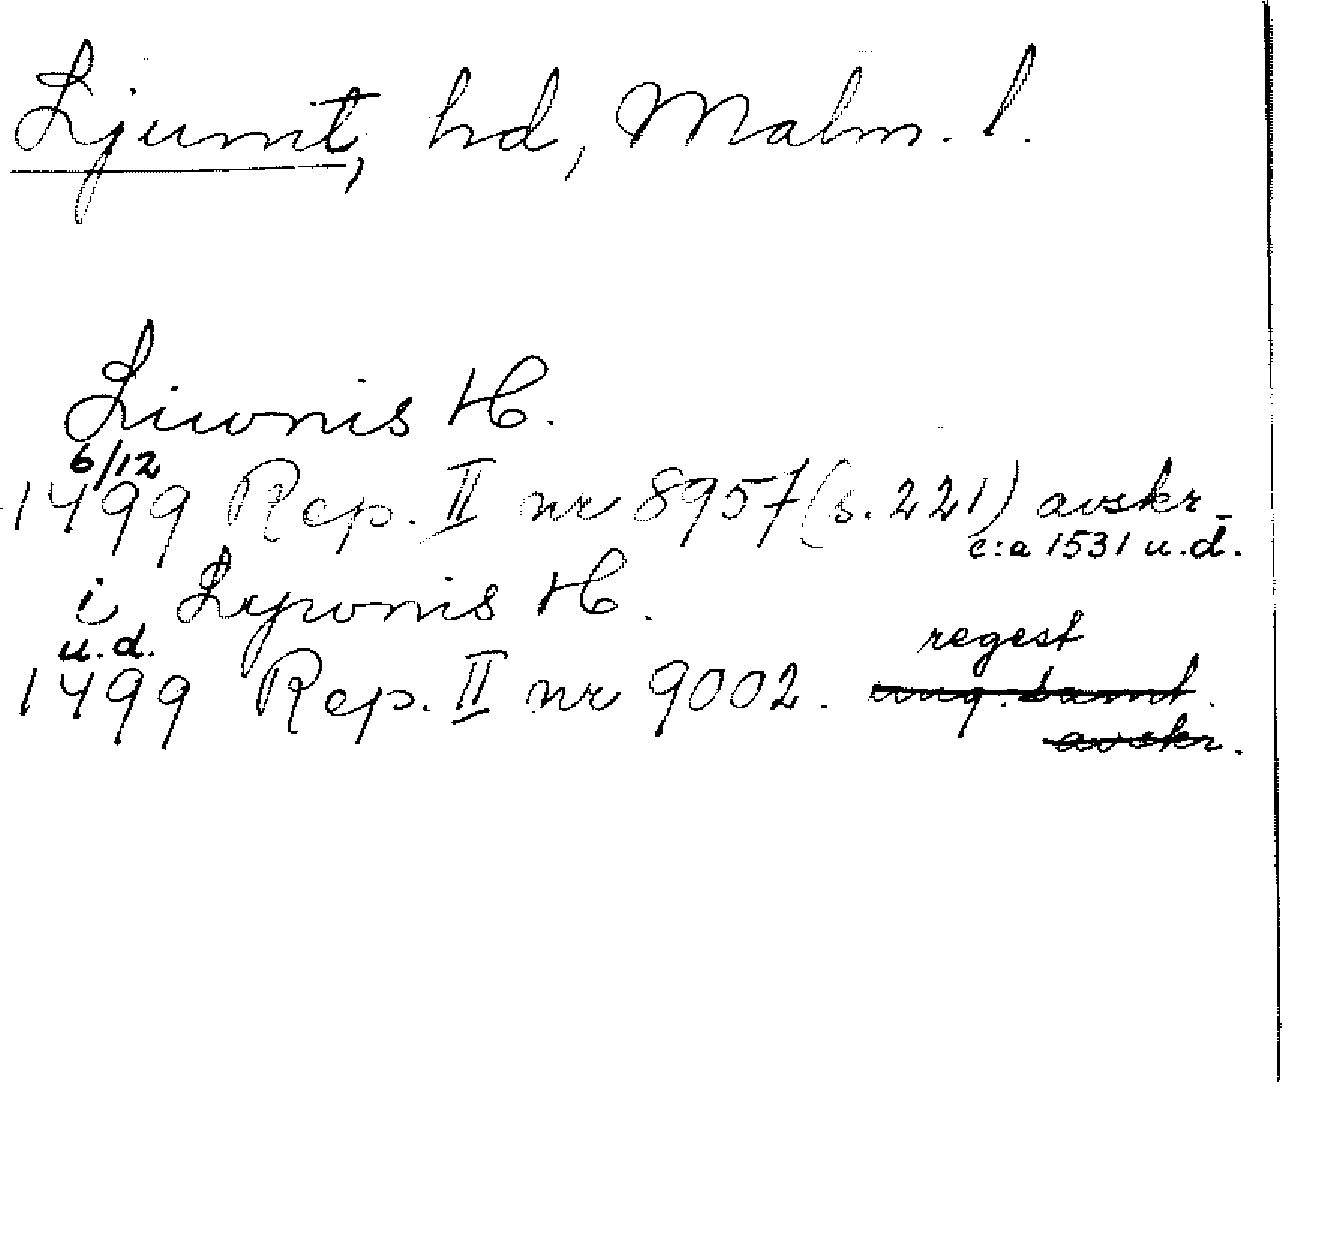 Ljunit, hd, Malm. l.
Liwnis H.
6/12
1499 Rep. II nr 8957 (s. 221) avskr.
c:a 1531 u.d.
i Lywnis H.
u.d.
regest
1499 Rep. II nr 9002. ung. samt.
avskr.